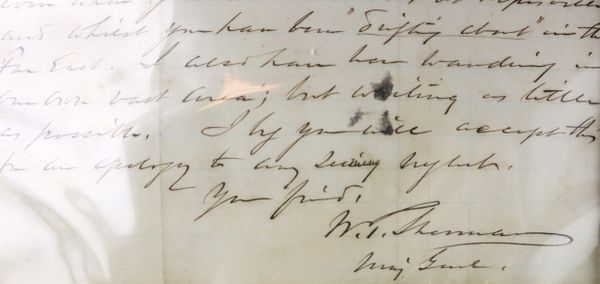 and whilst you have been "drifting about" in the
Far East. I also have been wandering in
our own vast area; but writing as little
as possible. I beg you will accept this
for an apology to any seeming neglect.
Your friend,
W. T. Sherman
Maj Genl.